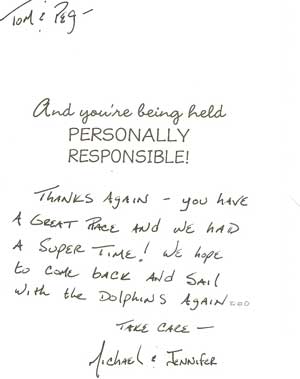 Tom & Peg -
And you're being held
PERSONALLY
RESPONSIBLE!
THANKS AGAIN - YOU HAVE
A GREAT PLACE AND WE HAD
A SUPER TIME! WE HOPE
to come back AND SAIL
with the DOLPHINS AGAIN...
TAKE CARE -
MICHAEL & JENNIFER